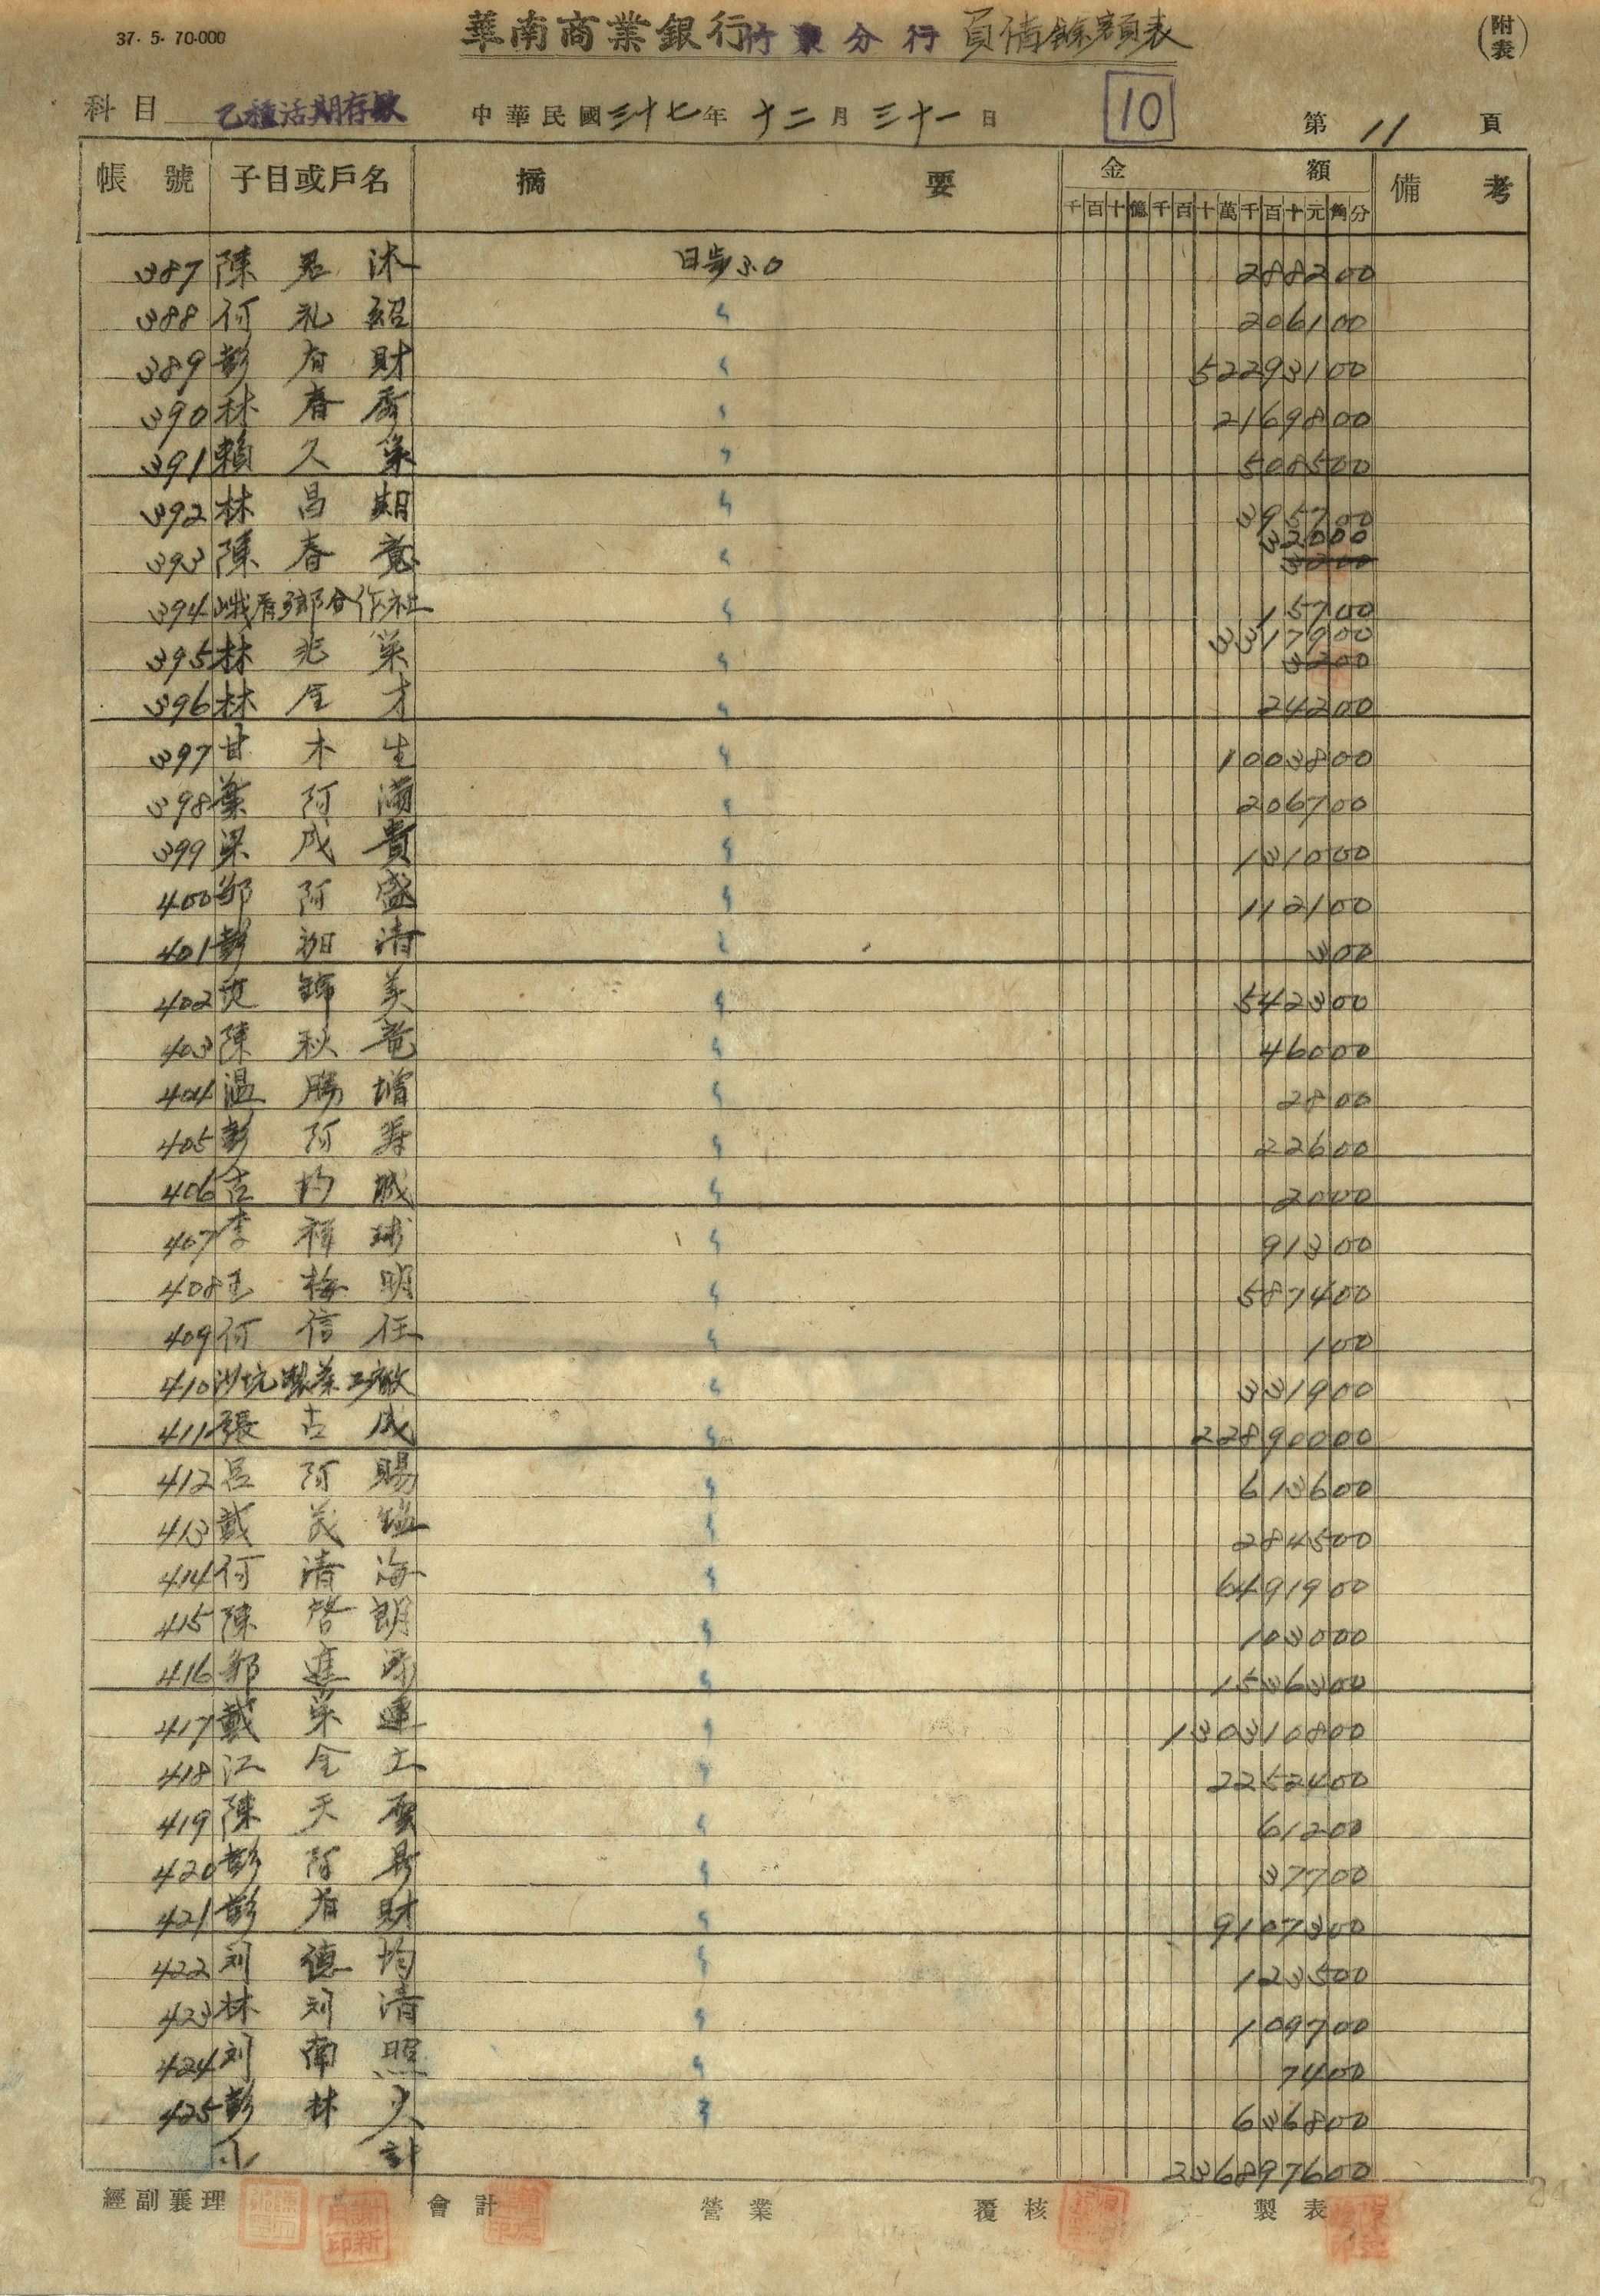 37. 5. 70.000
華南商業銀行竹東分行負債餘額表
(附表)
科目 乙種活期存款 中華民國三十七年十二月三十一日 10 第11頁
帳號 子目或戶名 摘要 金額 備考
千百十億千百十萬千百十元角分
387 陳君沐 日步3.0 288200
388 何礼紹 〃 206100
389 彭有財 〃 52293100
390 林春秀 〃 2169800
391 賴久榮 〃 508500
392 林昌期 〃 395700
32000
393 陳春 〃 3200
394 峨眉鄉合作社 〃 15700
3317900
395 林兆榮 〃 3200
396 林全才 〃 24200
397 甘木生 〃 1003800
398 葉阿滿 〃 206700
399 梁成貴 〃 131000
400 鄒阿盛 〃 112100
401 彭清 〃 300
402 錦美 〃 542300
403 陳秋竜 〃 46000
404 温勝增 〃 2800
405 彭阿寿 〃 22600
406 古均 〃 2000
407 李祥球 〃 91300
408 王梅明 〃 587400
409 何信任 〃 100
410 坑製茶工廠 〃 331900
411 張古成 〃 22890000
412 呂阿賜 〃 613600
413 戴茂 〃 284500
414 何清海 〃 6491900
415 陳啓朗 〃 103000
416 鄒進 〃 1536300
417 戴榮運 〃 130310800
418 江全土 〃 2252400
419 陳天 〃 61200
420 彭阿昇 〃 37700
421 彭有財 〃 9107300
422 刘德均 〃 123500
423 林刘清 〃 109700
424 刘南照 〃 7400
425 彭林火 〃 636800
小計 236897600
經副襄理 會計 營業 覆核 製表